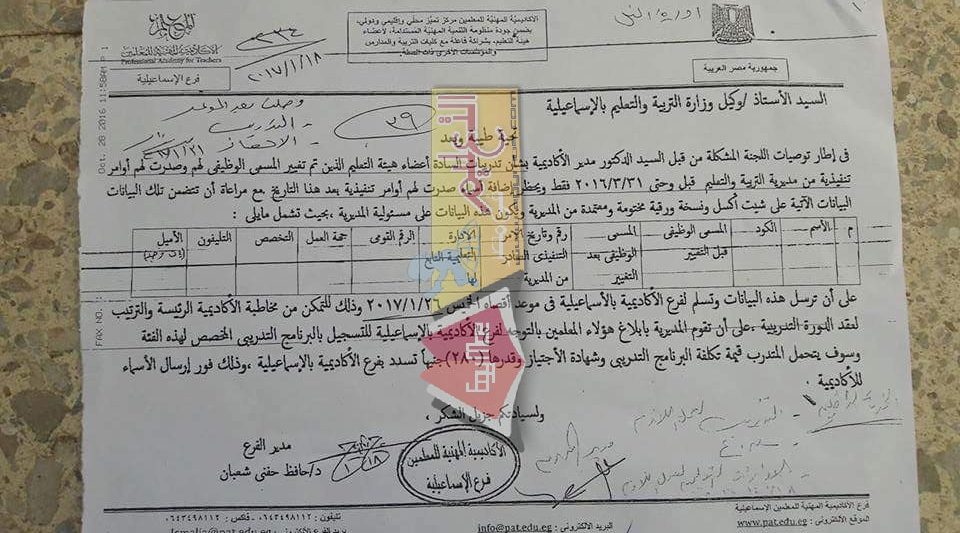 ١
الأكاديمية المهنية للمعلمين
Professional Academy for Teachers
فرع الإسماعيلية
٣٣٤
٢٠١٧/١/١٨
الأكاديمية المهنية للمعلمين مركز تميز محلي وإقليمي ودولي،
يضمن جودة منظومة التنمية المهنية المستدامة، لأعضاء
هيئة التعليم، بشراكة فاعلة مع كليات التربية والمدارس
والمؤسسات الأخرى ذات الصلة.
جمهورية مصر العربية
Oct. 28 2016 11:58AM P 1
FAX NO. :
السيد الأستاذ /وكيل وزارة التربية والتعليم بالإسماعيلية
وصلت بعد الموعد
التدريب
٣٩
تحية طيبة وبعد
فى إطار توصيات اللجنة المشكلة من قبل السيد الدكتور مدير الأكاديمية بشأن تدريبات السادة أعضاء هيئة التعليم الذين تم تغيير المسمى الوظيفى لهم وصدرت لهم أوامر
تنفيذية من مديرية التربية والتعليم قبل وحتى ٢٠١٦/٣/٣١ فقط ويحظر إضافة أسماء صدرت لهم أوامر تنفيذية بعد هذا التاريخ مع مراعاة أن تتضمن تلك البيانات
البيانات الآتية على شيت أكسل ونسخة ورقية مختومة ومعتمدة من المديرية وتكون هذه البيانات على مسئولية المديرية ،بحيث تشمل مايلى :
م الأسم الكود المسمى الوظيفى قبل التغيير المسمى الوظيفى بعد التغيير رقم وتاريخ الأمر التنفيذى الصادر من المديرية الادارة التعليمية التابع لها الرقم القومى جهة العمل التخصص التليفون الأميل
على أن ترسل هذه البيانات وتسلم لفرع الأكاديمية بالأسماعيلية فى موعد أقصاه الخميس ٢٠١٧/١/٢٦ وذلك للتمكن من مخاطبة الأكاديمية الرئيسة والترتيب
لعقد الدورة التدريبية ،على أن تقوم المديرية بابلاغ هؤلاء المعلمين بالتوجه لفرع الأكاديمية بالإسماعيلية للتسجيل بالبرنامج التدريبى المخصص لهذه الفئة
وسوف يتحمل المتدرب قيمة تكلفة البرنامج التدريبى وشهادة الأجتياز وقدرها (٢٨٠) جنيهاً تسدد بفرع الأكاديمية بالإسماعيلية ،وذلك فور إرسال الأسماء
للأكاديمية
ولسيادتكم جزيل الشكر ،
مدير الفرع
د/حافظ حفنى شعبان
الأكاديمية المهنية للمعلمين
فرع الإسماعيلية
فرع الأكاديمية المهنية للمعلمين الإسماعيلية
الموقع الألكترونى : www.pat.edu.eg
البريد الالكترونى : info@pat.edu.eg
تليفون : ٠٦٤٣٤٩٨١١٢ - فاكس : ٠٦٤٣٤٩٨١١٢
بريد الفرع الالكترونى : Ismalia@pat.edu.eg